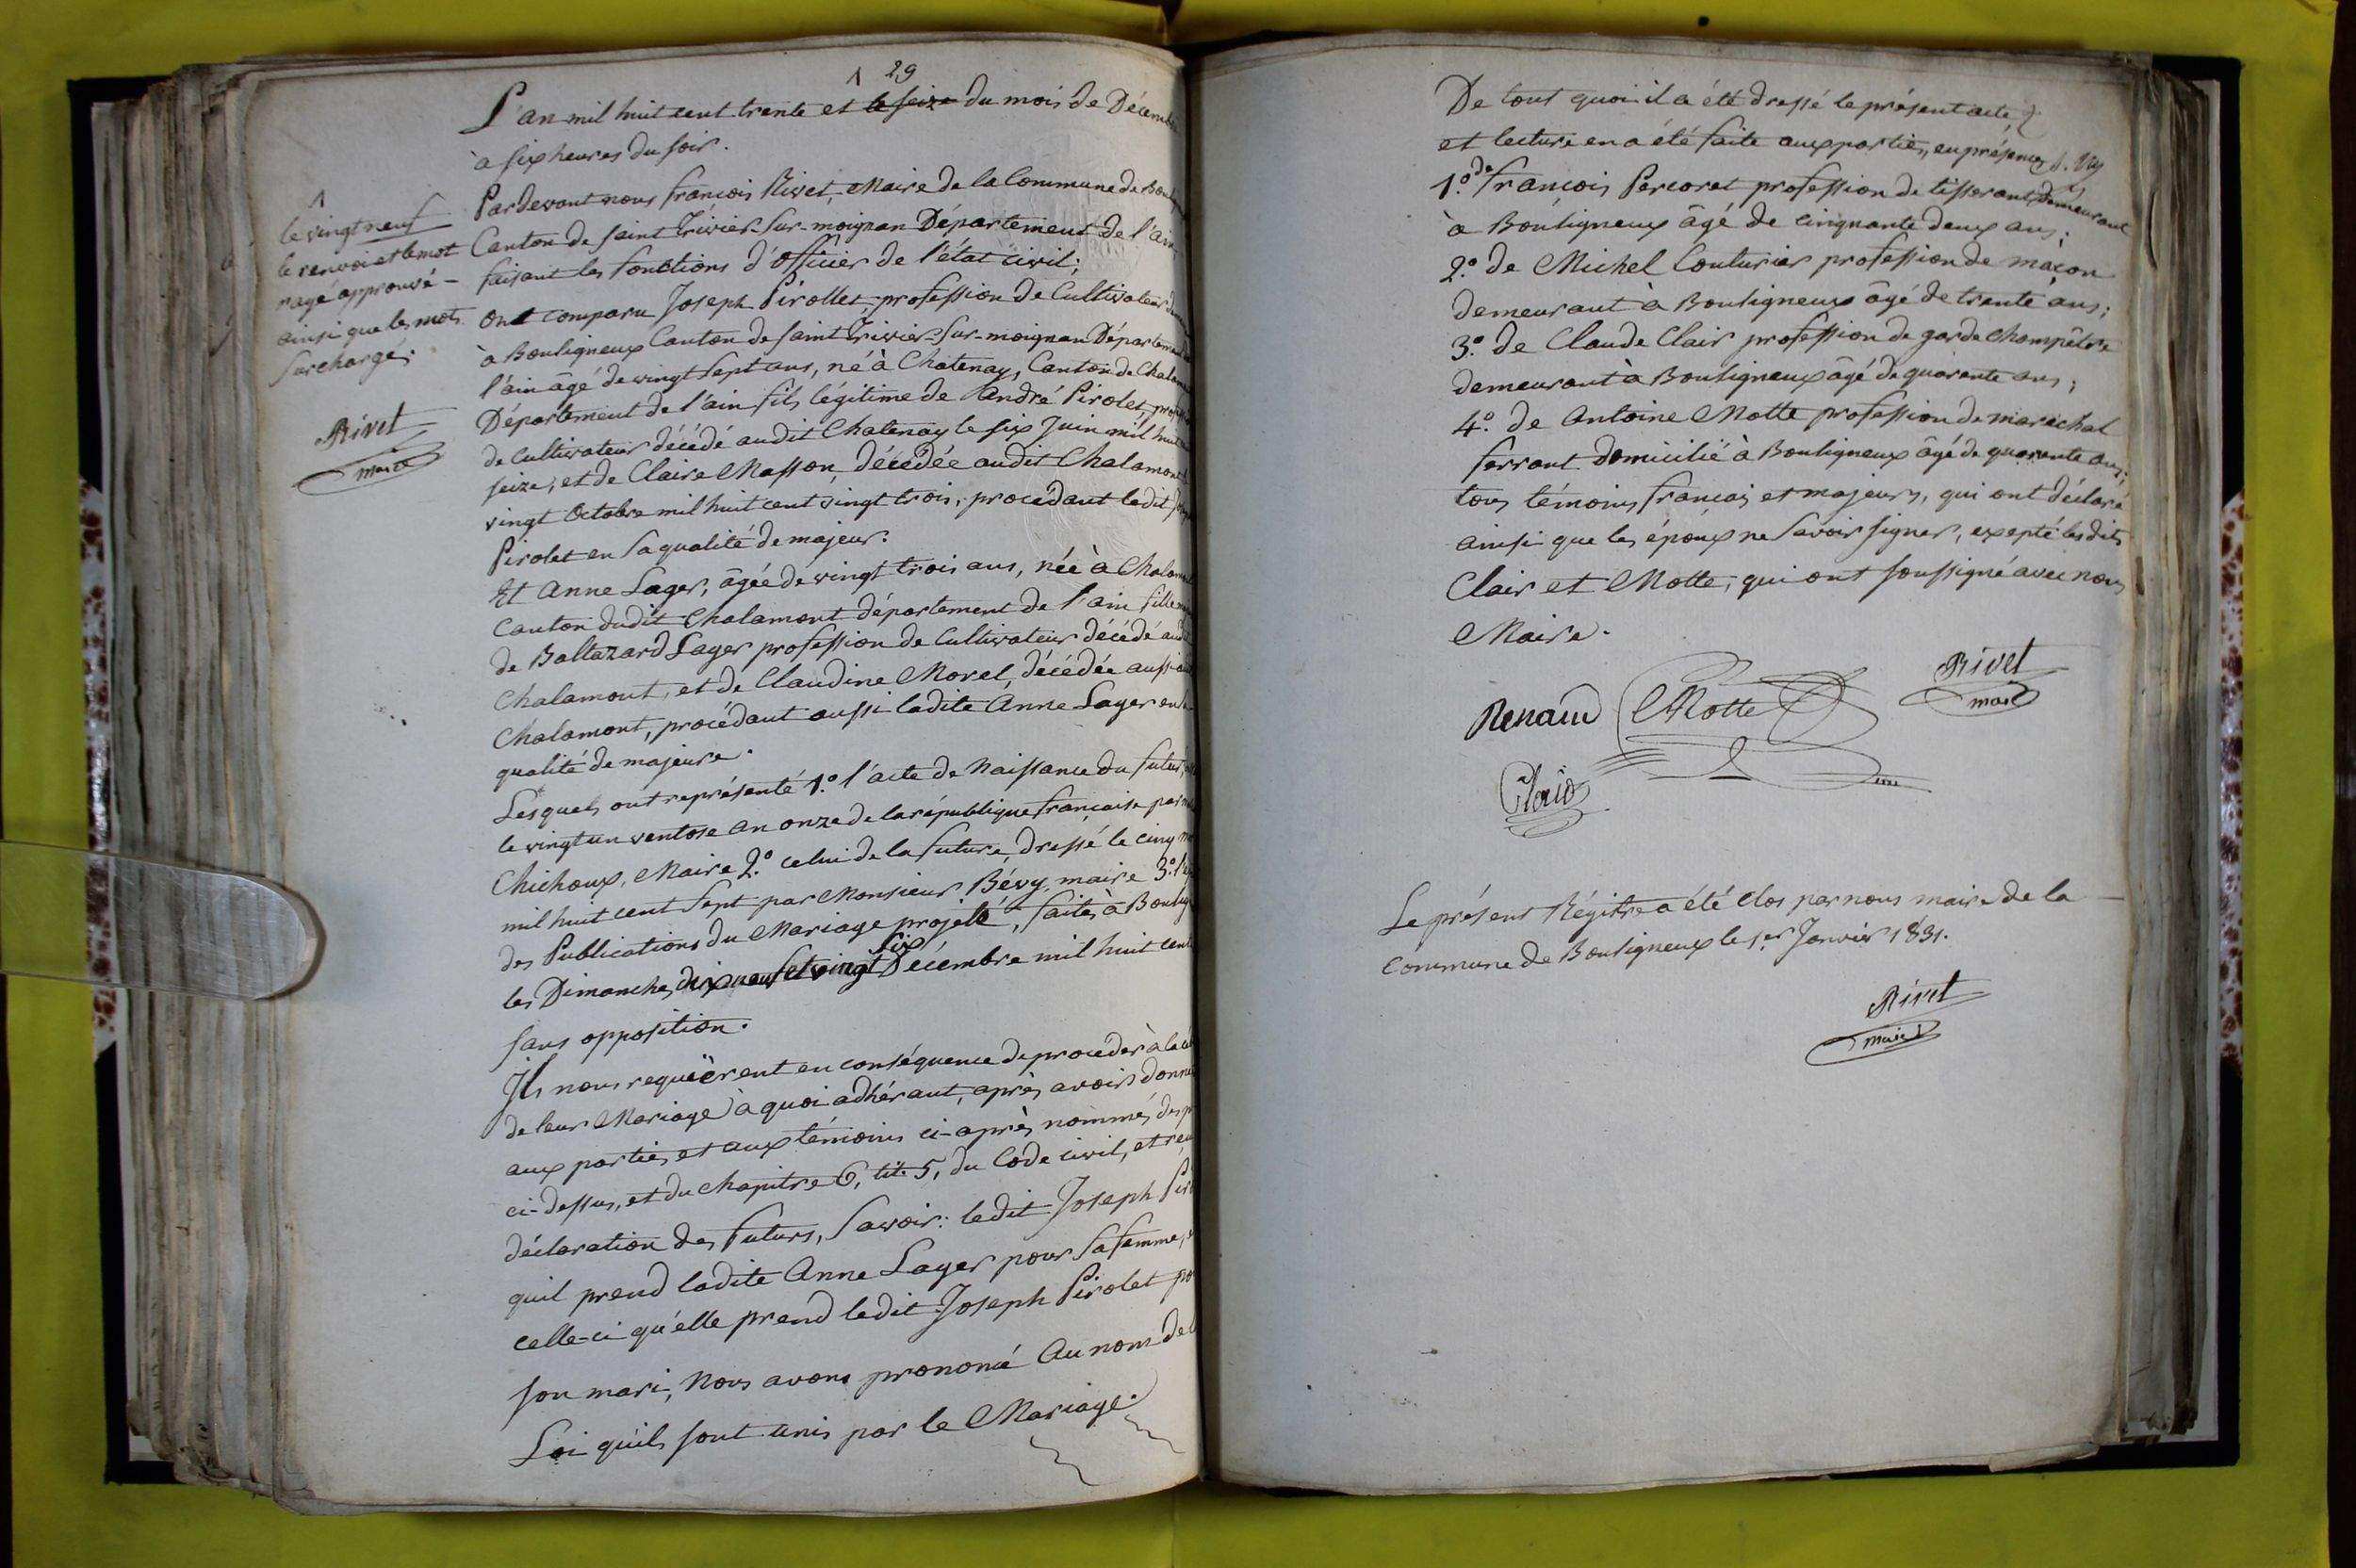 29
L'an mil huit cent trente et le seize du mois de Décembre
à six heures du soir.
Pardevant nous françois Rivet, Maire de la Commune de
Canton de saint Trivier-sur-moignan Département de l'ain
faisant les fonctions d'officier de l'état civil;
ont comparu Joseph Pirollet, profession de Cultivateur
à Bouligneux Canton de saint Trivier-sur-moignan Département
l'ain âgé de vingt sept ans, né à Chatenay, Canton de
Département de l'ain fils légitime de André Pirolet,
de cultivateur décédé audit Chatenay le six Juin mil huit
seize, et de Claire Masson, décédée audit Chalamont
vingt Octobre mil huit cent vingt trois, procédant ledit
Pirolet en sa qualité de majeur.
Et Anne Lager, âgée de vingt trois ans, née à
Canton dudit Chalamont département de l'ain fille
de Baltazard Lager profession de Cultivateur décédé
Chalamont, et de Claudine Morel, décédée aussi
Chalamont, procédant aussi ladite Anne Lager en
qualité de majeure.
Lesquels ont représenté 1.º l'acte de Naissance du futur,
le vingt un ventose an onze de la république française par
Chichoux, Maire 2.º celui de la future, dressé le cinq
mil huit cent sept par Monsieur Bévy, maire 3.º
des Publications du Mariage projeté, faites à
les Dimanches dix neuf et vingt six Décembre mil huit cent
sans opposition.
Ils nous requièrent en conséquence de procéder à la
de leur Mariage à quoi adhérant, après avoir donné
aux parties et aux témoins ci-après nommés des
ci-dessus, et du chapitre 6, tit. 5, du Code civil, et
déclaration des futurs, Savoir: ledit Joseph
quil prend ladite Anne Lager pour sa femme,
celle-ci qu'elle prend ledit Joseph Pirolet
son mari, Nous avons prononcé Au nom de
Loi quils sont unis par le Mariage.
le vingt neuf
le renvoi et le mot
rayé approuvé -
ainsi que les mots
surchargés.
Rivet
maire
De tout quoi il a été dressé le présent acte
et lecture en a été faite aux parties, en présence
1.º de françois Percoret profession de tisserant, demeurant
à Bouligneux âgé de cinquante deux ans;
2.º de Michel Couturier profession de maçon
demeurant à Bouligneux âgé de trente ans;
3.º de Claude Clair profession de garde champêtre
demeurant à Bouligneux âgé de quarente ans;
4.º de Antoine Motte profession de maréchal
ferrant domicilié à Bouligneux âgé de quarente ans;
tous témoins français et majeurs, qui ont déclaré
ainsi que les époux ne savoir signer, expepté lesdits
Clair et Motte, qui ont soussigné avec nous
Maire.
Renaud Motte Rivet
maire
Clair
Le présent Régitre a été clos par nous maire de la
commune de Bouligneux le 1er Janvier 1831.
Rivet
maire